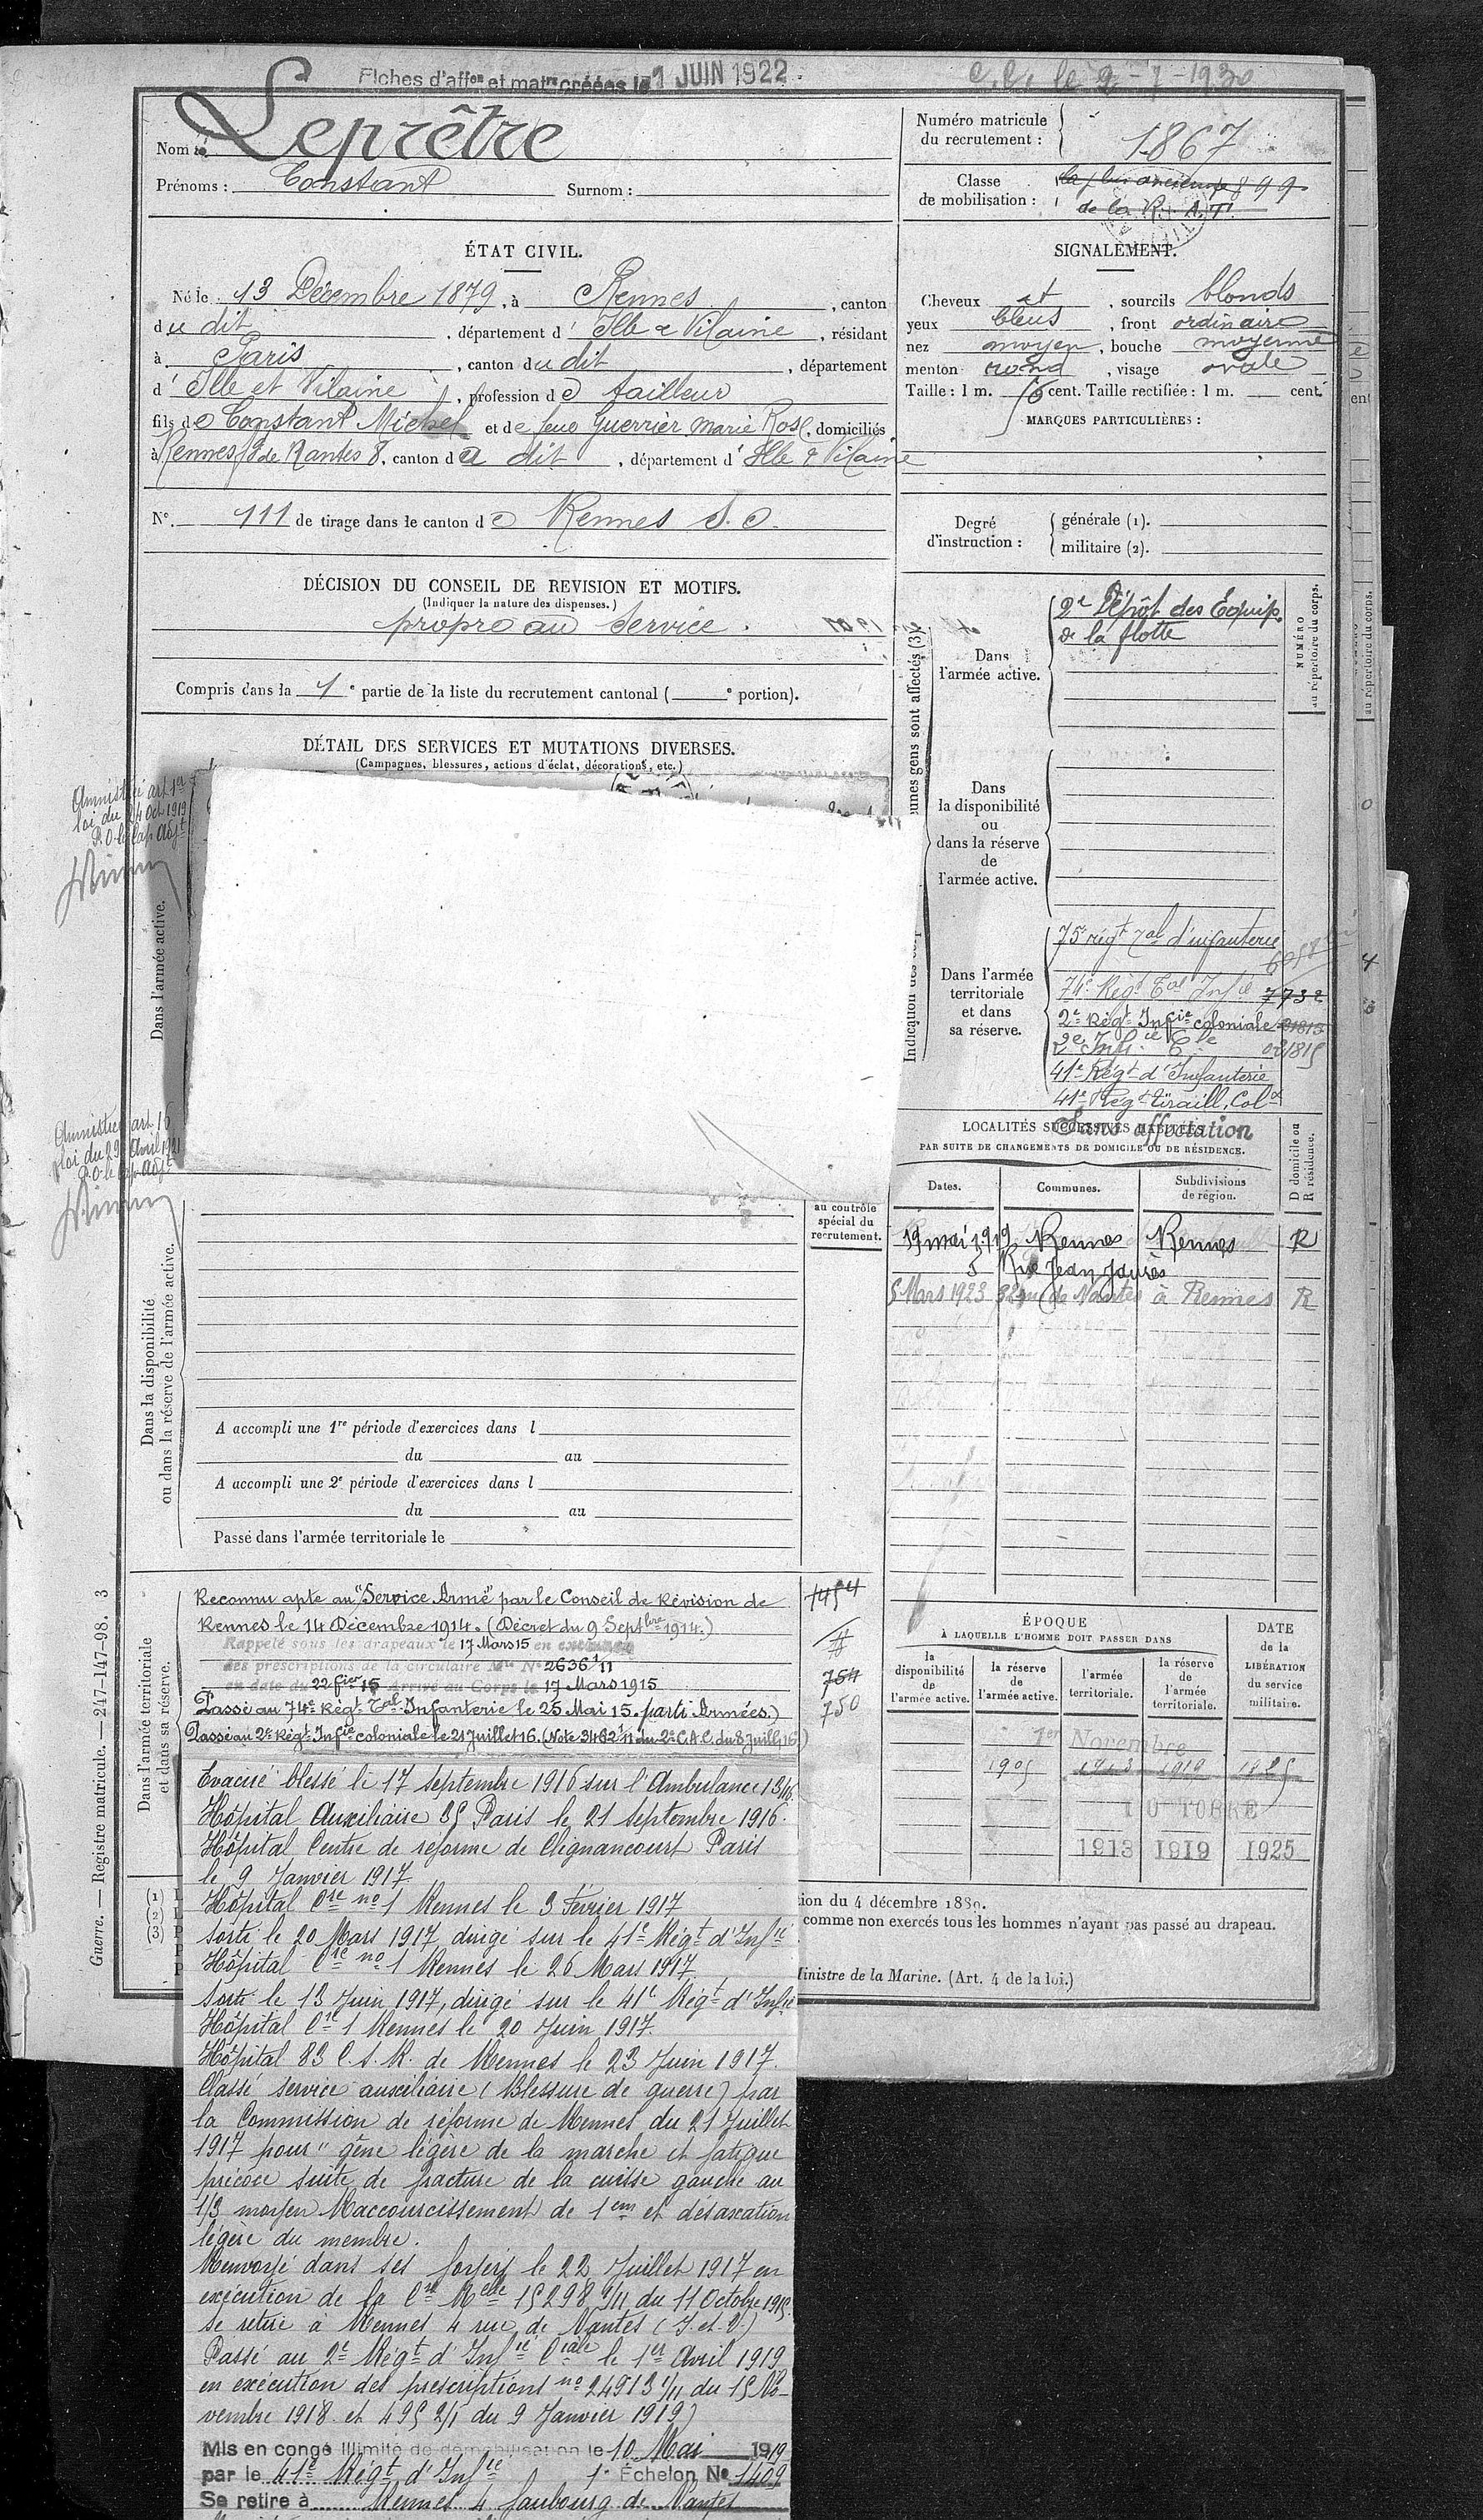 Fiches d'aff.on et mat.re créées le 1 JUIN 1922.
C.C. le 2-7-1930
Nom : Leprêtre
Prénoms : Constant Surnom :
Numéro matricule du recrutement : 1867
Classe de mobilisation : 1899
de la R. A. T.
ÉTAT CIVIL.
Né le 13 Décembre 1879, à Rennes, canton
du dit, département d'Ille & Vilaine, résidant
à Paris, canton du dit, département
d'Ille et Vilaine, profession de tailleur
fils de Constant Michel et de feue Guerrier Marie Rose, domiciliés
à Rennes f.g de Nantes 8, canton du dit, département d'Ille & Vilaine
N° 111 de tirage dans le canton de Rennes S. O.
SIGNALEMENT.
Cheveux et, sourcils blonds
yeux bleus, front ordinaire
nez moyen, bouche moyenne
menton rond, visage ovale
Taille : 1 m. 76 cent. Taille rectifiée : 1 m. cent.
MARQUES PARTICULIÈRES :
Degré d'instruction : générale (1).
militaire (2).
DÉCISION DU CONSEIL DE REVISION ET MOTIFS.
(Indiquer la nature des dispenses.)
propre au Service.
Compris dans la 1e partie de la liste du recrutement cantonal ( e portion).
DÉTAIL DES SERVICES ET MUTATIONS DIVERSES.
(Campagnes, blessures, actions d'éclat, décorations, etc.)
Amnistié art 1er
loi du 24 Oct 1919
P.O. le Cap Adjt
Dans l'armée active.
Amnistié art 16
loi du 29 Avril 1921
P.O. le Cap Adjt
unes gens sont affectés (3)
Indication des corp
NUMÉRO au répertoire du corps.
au répertoire du corps.
Dans l'armée active.
2e Dépôt des Équip.
de la flotte
Dans la disponibilité ou dans la réserve de l'armée active.
Dans l'armée territoriale et dans sa réserve.
75e régt Tal d'infanterie
74e Régt Tal Infie 7732
2e Régt Infie coloniale 01815
2e Infie Cle 021815
41e Régt d'Infanterie
41e Régt Tiraill. Colx
Sans affectation
LOCALITÉS SUCCESSIVES HABITÉES
PAR SUITE DE CHANGEMENTS DE DOMICILE OU DE RÉSIDENCE.
Dates. Communes. Subdivisions de région. D domicile ou R résidence.
19 mai 1919 Rennes Rennes R
5 Rue Jean Jaurès
5 Mars 1923 32 rue de Nantes à Rennes R
au contrôle spécial du recrutement.
Dans la disponibilité
ou dans la réserve de l'armée active.
A accompli une 1re période d'exercices dans l
du au
A accompli une 2e période d'exercices dans l
du au
Passé dans l'armée territoriale le
Guerre. — Registre matricule. — 247-147-98. 3
Dans l'armée territoriale
et dans sa réserve.
Reconnu apte au "Service Armé" par le Conseil de Révision de
Rennes le 14 Décembre 1914. (Décret du 9 Septbre 1914.)
Rappelé sous les drapeaux le 17 Mars 15 en exécution
des prescriptions de la circulaire Mlle N° 2636 1/11
en date du 22 fier 15 Arrivé au Corps le 17 Mars 1915
Passé au 74e Régt Tal Infanterie le 25 Mai 15. parti Armées.)
Passé au 2e Régt Infie coloniale le 21 Juillet 16. (Note 3462 1/11 du 2e C.A.C. du 8 Juillet 16)
1454
754
750
ÉPOQUE
À LAQUELLE L'HOMME DOIT PASSER DANS
la disponibilité de l'armée active. la réserve de l'armée active. l'armée territoriale. la réserve de l'armée territoriale.
DATE de la LIBÉRATION du service militaire.
1er Novembre
1905 1913 1919 1925
1 OCTOBRE
1913 1919 1925
Evacué blessé le 17 septembre 1916 sur l'Ambulance 13/16.
Hôpital Auxiliaire 35 Paris le 21 septembre 1916.
Hôpital Centre de réforme de Clignancourt Paris
le 9 Janvier 1917.
Hôpital Cre no 1 Rennes le 3 Février 1917
sorti le 20 Mars 1917, dirigé sur le 41e Régt d'Infie
Hôpital Cre no 1 Rennes le 26 Mars 1917
sorti le 13 Juin 1917, dirigé sur le 41e Régt d'Infie
Hôpital Cre 1 Rennes le 20 Juin 1917.
Hôpital 83 C.S.R. de Rennes le 23 Juin 1917.
Classé service auxiliaire (Blessure de guerre) par
la Commission de réforme de Rennes du 21 Juillet
1917 pour "gêne légère de la marche et fatigue
précoce suite de fracture de la cuisse gauche au
1/3 moyen Raccourcissement de 1 cm et désaxation
légère du membre.
Renvoyé dans ses foyers le 22 Juillet 1917 en
exécution de la Cre Melle 15298 1/11 du 11 Octobre 1915.
se retire à Rennes 4 rue de Nantes (I. et V.)
Passé au 2e Régt d'Infie Ciale le 1er Avril 1919
en exécution des prescriptions no 24913 1/11 du 15 No-
vembre 1918 et 495 2/1 du 9 Janvier 1919)
Mis en congé illimité de démobilisation le 10 Mai 1919
par le 41e Régt d'Infie 1er Échelon N° 1409
Se retire à Rennes 4 faubourg de Nantes
tion du 4 décembre 1889.
comme non exercés tous les hommes n'ayant pas passé au drapeau.
Ministre de la Marine. (Art. 4 de la loi.)